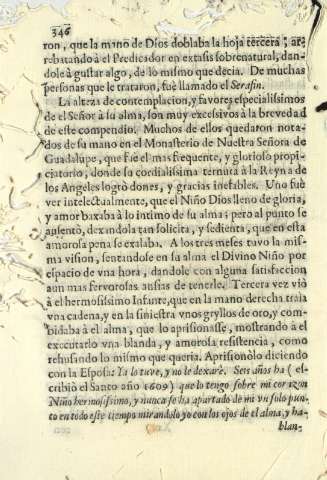 346
ron, que la mano de Dios doblaba la hoja tercera; ar-
rebatando à el Predicador en extasis sobrenatural, dan-
dole à gustar algo, de lo mismo que decia. De muchas
personas que le trataron, fue llamado el Serafin.
La alteza de contemplacion, y favores especialissimos
de el Señor à su alma, son muy excessivos à la brevedad
de este compendio. Muchos de ellos quedaron nota-
dos de su mano en el Monasterio de Nuestra Señora de
Guadalupe, que fue el mas frequente, y glorioso propi-
ciatorio, donde su cordialissima ternura à la Reyna de
los Angeles logrò dones, y gracias inefables. Uno fuè
ver intelectualmente, que el Niño Dios lleno de gloria,
y amor baxaba à lo intimo de su alma; pero al punto se
ausentò, dexandola tan solicita, y sedienta, que en esta
amorosa pena se exalaba. A los tres meses tuvo la mis-
ma vision, sentandole en su alma el Divino Niño por
espacio de vna hora, dandole con alguna satisfaccion
aun mas fervorosas ansias de tenerle. Tercera vez viò
à el hermosissimo Infante, que en la mano derecha traia
vna cadena, y en la siniestra vnos gryllos de oro, y com-
bidaba à el alma, que lo aprisionasse, mostrando à el
executarlo vna blanda, y amorosa resistencia, como
rehusando lo mismo que queria. Aprisionòlo diciendo
con la Esposa: Ya lo tuve, y no le dexarè. Seis años ha (es-
cribiò el Santo año 1609) que lo tengo sobre mi corazon
Niño hermosissimo, y nunca se ha apartado de mi vn solo pun-
to en todo este tiempo mirandolo yo con los ojos de el alma, y ha-
blan-